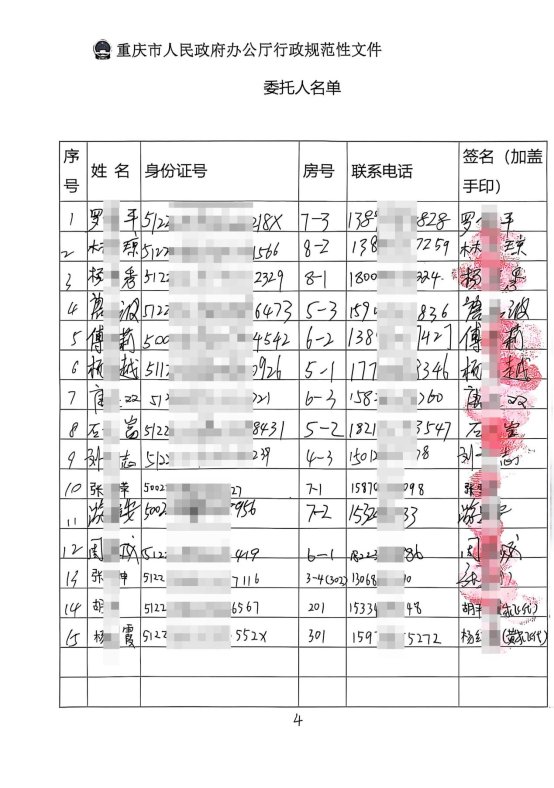 重庆市人民政府办公厅行政规范性文件
委托人名单
序号 姓名 身份证号 房号 联系电话 签名（加盖手印）
1 罗 平 5122 218X 7-3 138 828 罗 平
2 林 琼 5122 1566 8-2 138 7259 林 琼
3 杨 秀 5122 2329 8-1 1800 224 杨
4 波 5122 6473 5-3 159 836 波
5 傅 莉 500 4542 6-2 138 7427 傅 莉
6 杨 越 5112 0926 5-1 177 3346 杨 越
7 唐 双 513 021 6-3 158 260 唐 双
8 左 富 5122 8431 5-2 1821 3547 左 富
9 刘 志 5122 239 4-3 1501 78 刘 志
10 张 荣 5002 27 7-1 15870 098 张
11 5002 7956 7-2 1532 33
12 周 成 5122 419 6-1 18223 786 周 成
13 张 坤 5122 7116 3-4(302) 13068 0
14 胡 5122 6567 201 15334 48 胡
15 杨 霞 5122 552X 301 159 5272 杨
4